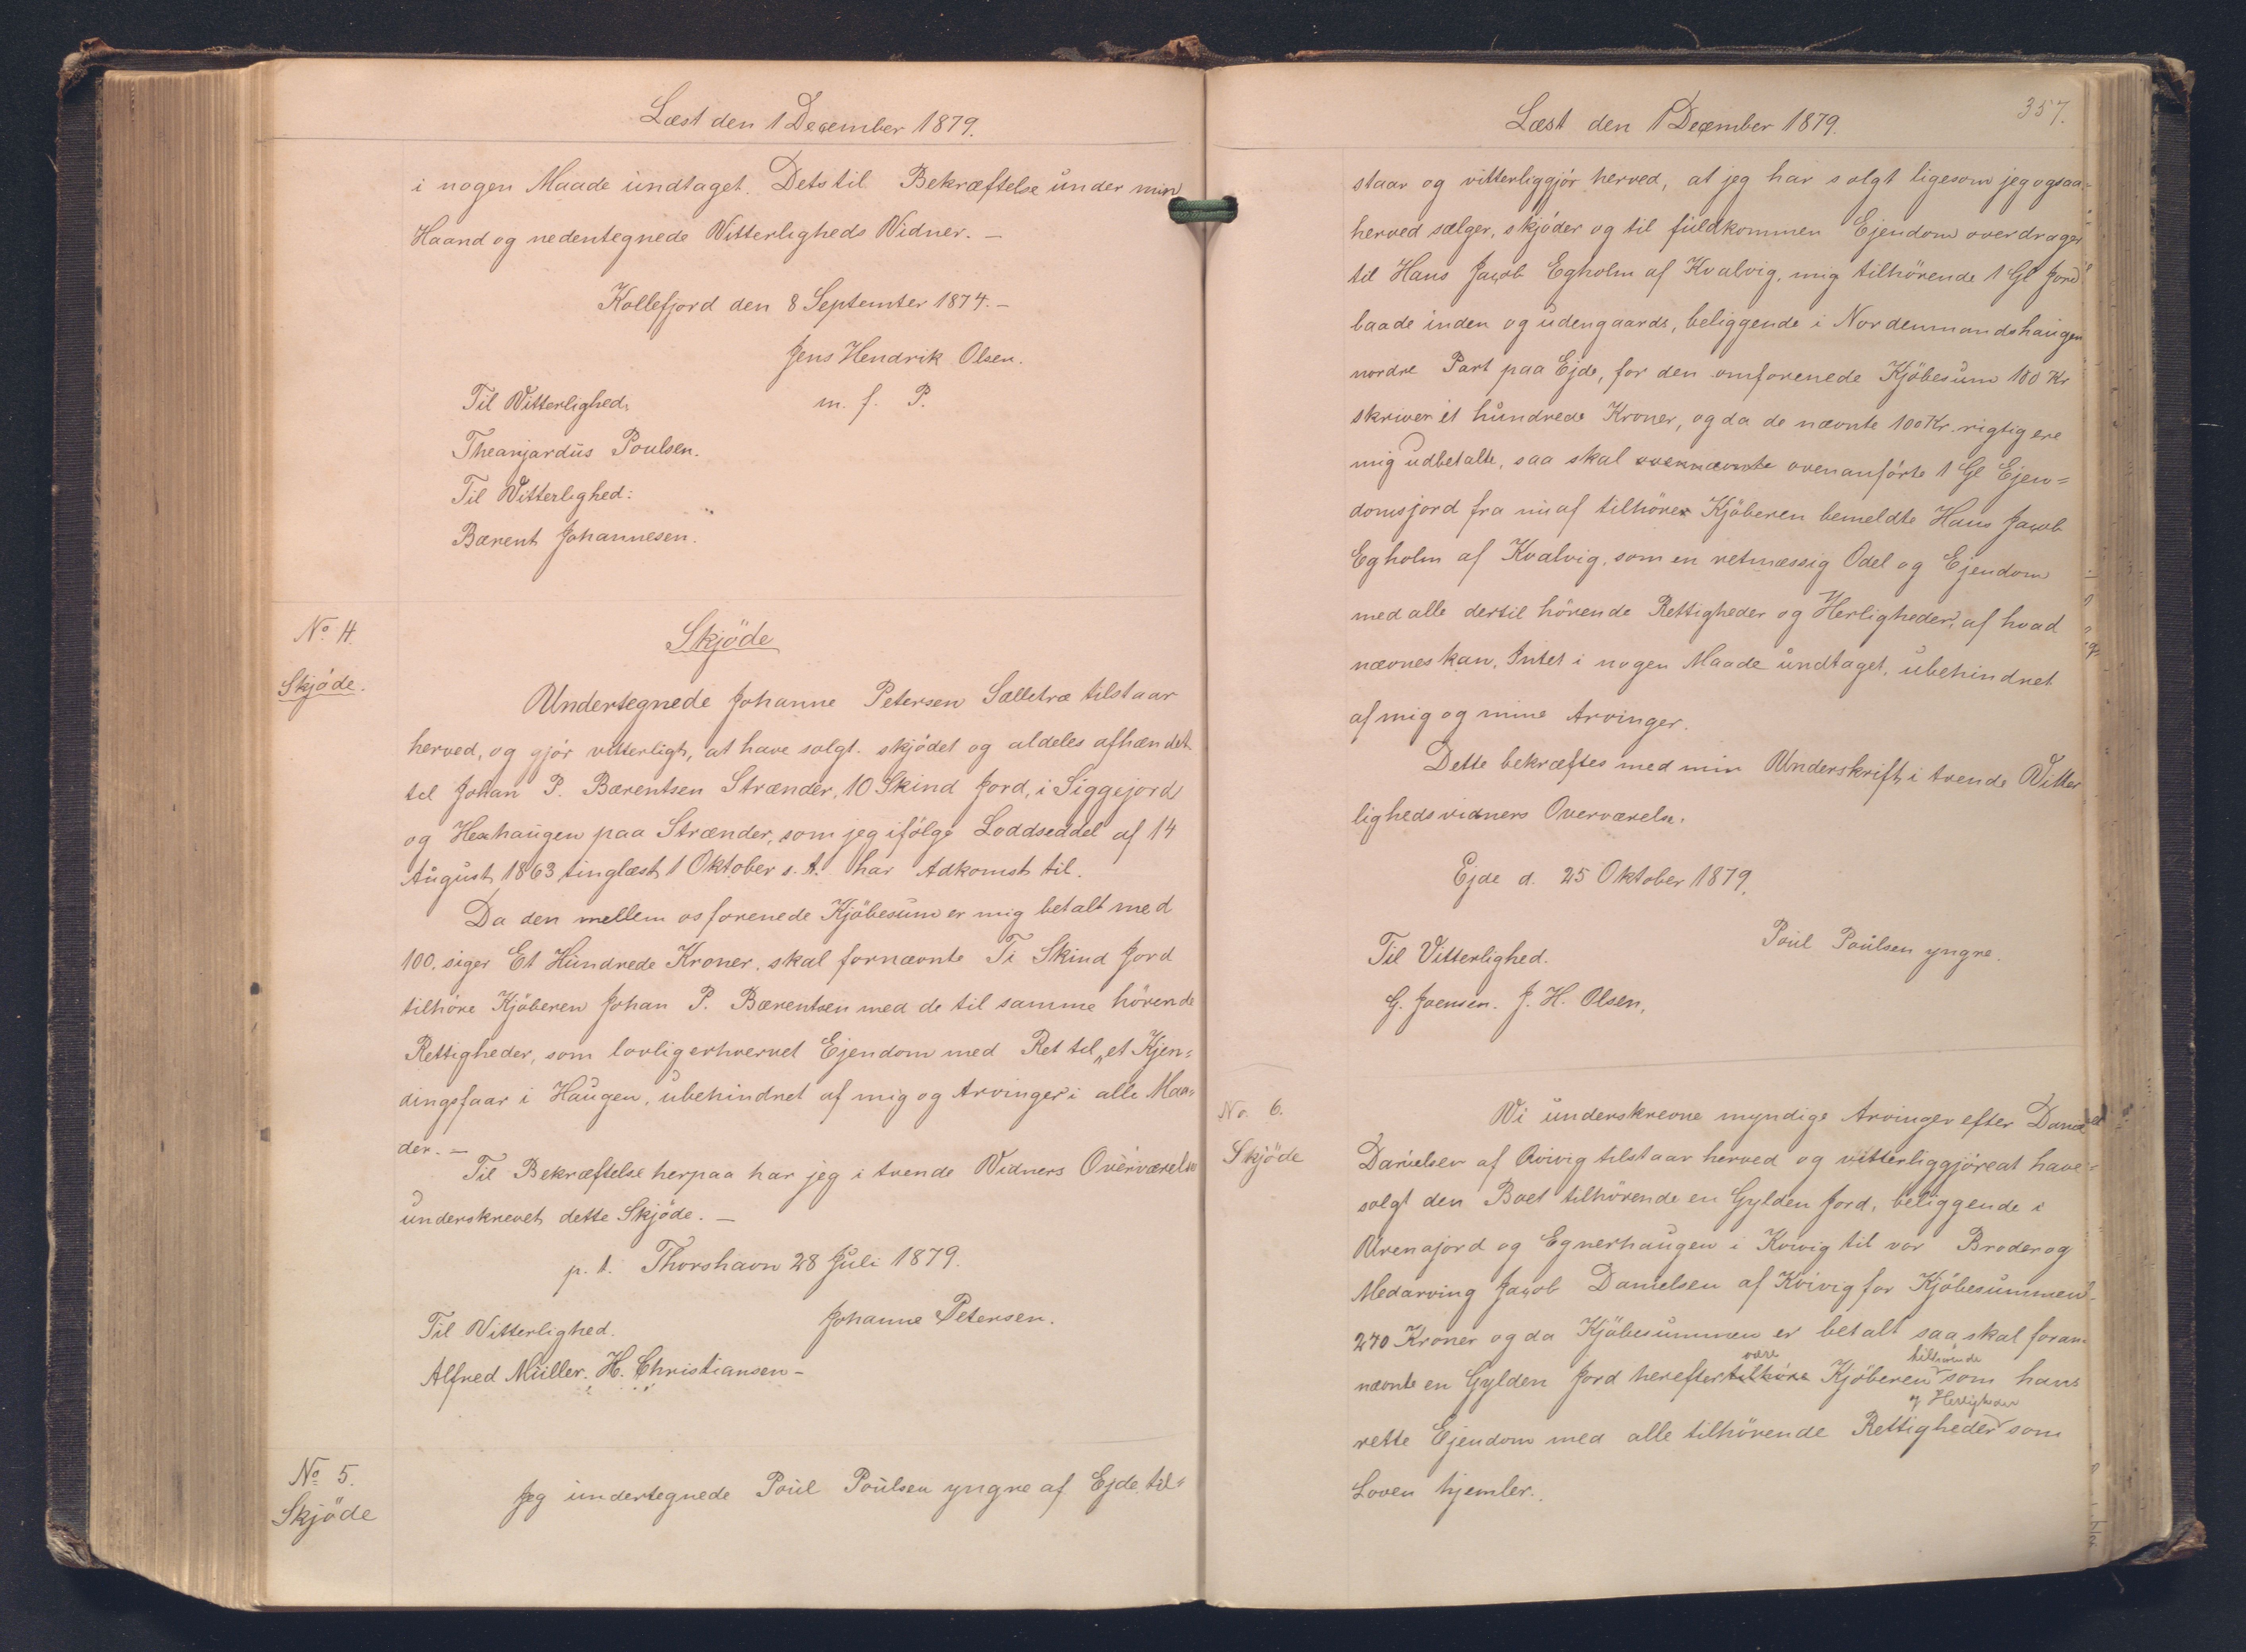 Læst den 1 December 1879.
i nogen Maade undtaget. Dets til Bekræftelse under min
Haand og nedentegnede Vitterligheds Vidner. —
Kollefjord den 8 September 1874. —
Jens Hendrik Olsen.
Til Vitterlighed:
m. f. P.
Theanjardus Poulsen.
Til Vitterlighed:
Barent Johannesen.
No. 4.
Skjöde.
Skjöde
Undertegnede Johanne Petersen Sælletræ tilstaar
herved, og gjör vitterligt, at have solgt. skjödet og aldeles afhændet
til Johan P. Bærentsen Strænder, 10 Skind Jord, i Siggejord
og Hexhaugen paa Strænder, som jeg ifölge Loddseddel af 14
August 1863 tinglæst 1 Oktober s. A. har Adkomst til.
Da den mellem os forenede Kjöbesum er mig betalt med
100. siger Et Hundrede Kroner. skal fornævnte Ti Skind Jord
tilhöre Kjöberen Johan P. Bærentsen med de til samme hörende
Rettigheder, som lovlig erhvervet Ejendom med Ret til „et Kjen-
dingsfaar i Haugen, ubehindret af mig og Arvinger i alle Maa-
der. —
Til Bekræftelse herpaa har jeg i tvende Vidners Overværelse
underskrevet dette Skjöde. —
p. t. Thorshavn 28 Juli 1879.
Johanne Petersen.
Til Vitterlighed.
Alfred Müller. H. Christiansen —
No. 5.
Skjöde
Jeg undertegnede Poul Poulsen yngre af Ejde til-
357.
Læst den 1 December 1879.
staar og vitterliggjör herved, at jeg har solgt ligesom jeg ogsaa
herved sælger, skjöder og til fuldkommen Ejendom overdrager
til Hans Jacob Egholm af Kvalvig, mig tilhörende 1 Gl Jord
baade inden og udengaards, beliggende i Nordenmandshaugen
nordre Part paa Ejde, for den omforenede Kjöbesum 100 Kr
skriver et hundrede Kroner, og da de nævnte 100 Kr. rigtig ere
mig udbetalte, saa skal ovennævnte ovenanförte 1 Gl Ejen-
domsjord fra nu af tilhörer Kjöberen bemeldte Hans Jacob
Egholm af Kvalvig, som en retmæssig Odel og Ejendom
med alle dertil hörende Rettigheder og Herligheder, af hvad
nævnes kan, Intet i nogen Maade undtaget, ubehindret
af mig og mine Arvinger.
Dette bekræftes med min Underskrift i tvende Vitter
lighedsvidners Overværelse.
Ejde d. 25 Oktober 1879.
Poul Poulsen yngre.
Til Vitterlighed.
G. Joensen. J. H. Olsen.
No. 6.
Skjöde
Vi underskrevne myndige Arvinger efter Daniel
Danielsen af Qvivig tilstaar herved og vitterliggjöre at have
solgt den Boet tilhörende en Gylden Jord, beliggende i
Urenajord og Egnerhaugen i Kvivig til vor Broder og
Medarving Jacob Danielsen af Kvivig for Kjöbesummen
270 Kroner og da Kjöbesummen er betalt saa skal foran
nævnte en Gylden Jord herefter tilhöre være Kjöberen tilhörende som hans
rette Ejendom med alle tilhörende Rettigheder og Herligheder som
Loven hjemler.